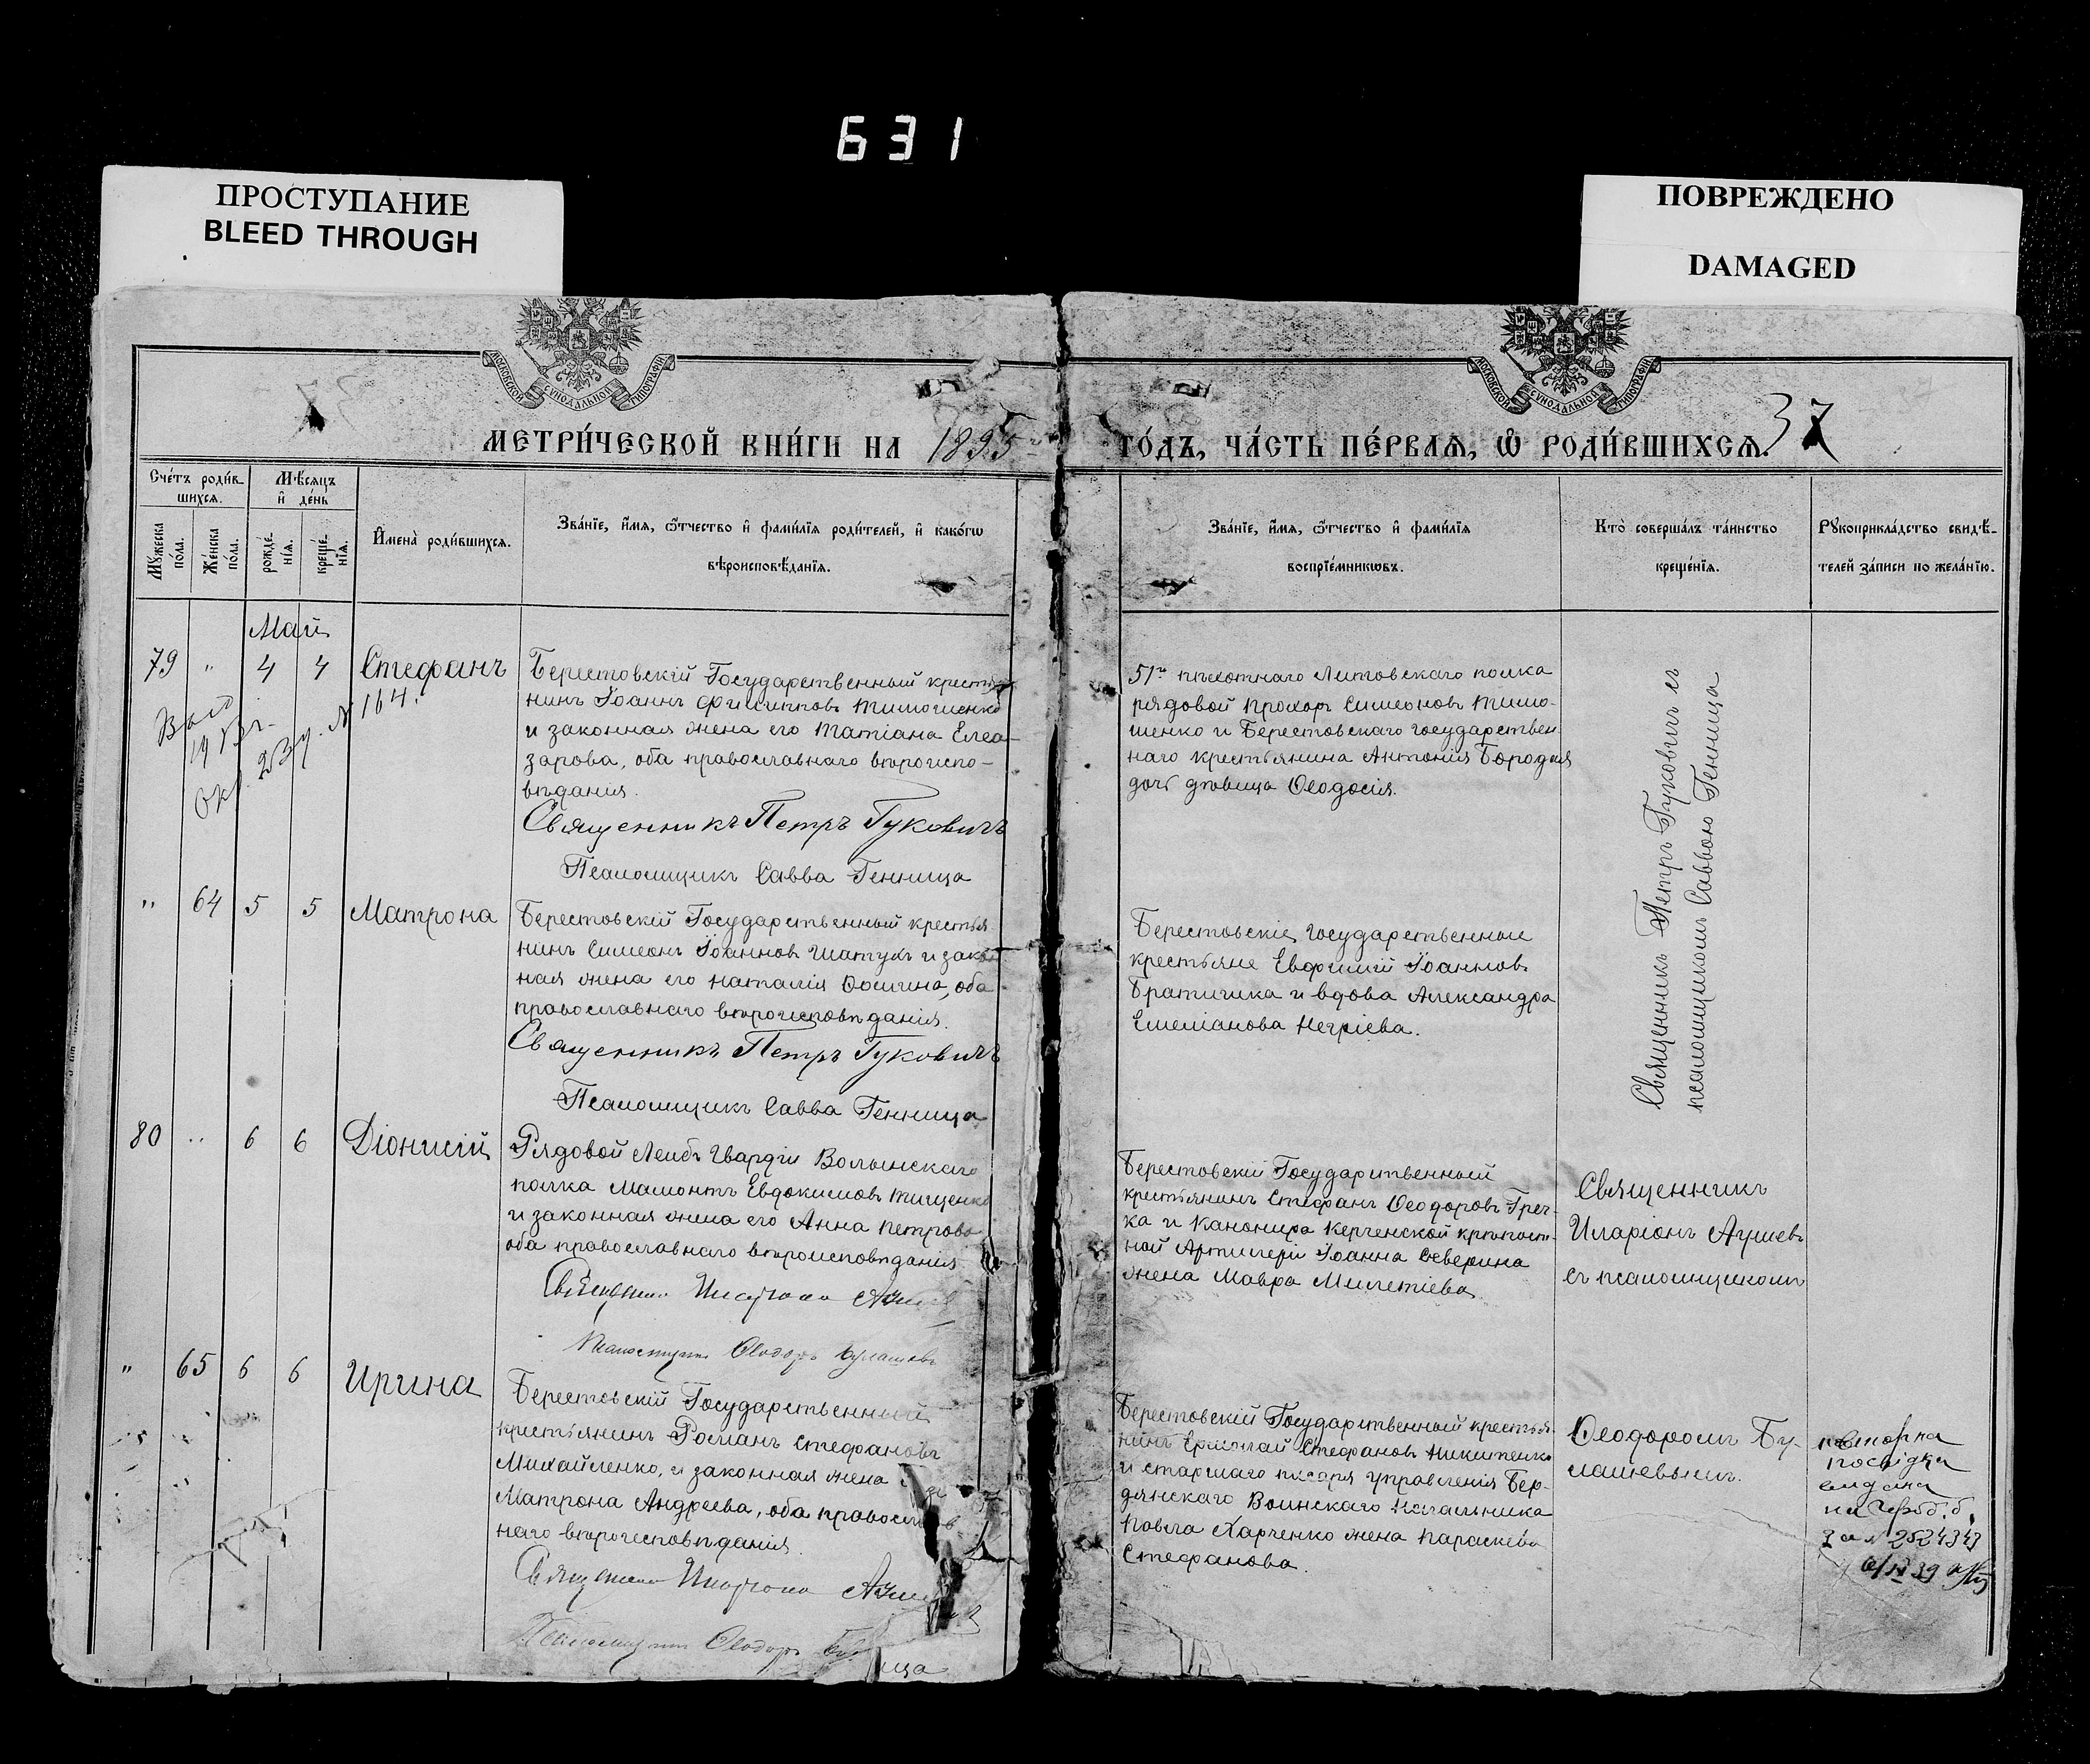 631
ПРОСТУПАНИЕ
BLEED THROUGH
ПОВРЕЖДЕНО
DAMAGED
МОСКОВСКОЙ СУНОДАЛЬНОЙ ТИПОГРАФІИ
МОСКОВСКОЙ СУНОДАЛЬНОЙ ТИПОГРАФІИ
МЕТРИ́ЧЕСКОЙ КНИ́ГИ НА 1895 ГО́ДЪ, ЧА́СТЬ ПЕ́РВАЯ, Ѿ РОДИ́ВШИХСЯ. 37
Сче́тъ роди́в-
шихся.
Мѣ́сяцъ
и҆ де́нь
Мꙋ́жеска по́ла.
Же́нска по́ла.
рожде́-
нїя.
креще́-
нїя.
И҆мена̀ роди́вшихся.
Зва́нїе, и҆́мя, ѻ҆́тчество и҆ фами́лїя роди́телей, и҆ како́гѡ
вѣроисповѣ́данїя.
Зва́нїе, и҆́мя, ѻ҆́тчество и҆ фами́лїя
воспрїе́мникѡвъ.
Кто̀ соверша́лъ та́инство
креще́нїя.
Рꙋкоприкла́дство свидѣ́-
телей за́писи по жела́нїю.
Май
79 " 4 4 Стефанъ
Берестовскій Государственный крестья
нинъ Іоаннъ Филипповъ Тимошенко
и законная жена его Татіана Елеа-
зарова, оба православнаго вѣроиспо-
вѣданія.
Священникъ Петръ Гуковичъ
Псаломщикъ Савва Генница
№ 164.
51го пѣхотнаго Литовскаго полка
рядовой Прохоръ Симеоновъ Тимо-
шенко и Берестовскаго государствен
наго крестьянина Антонія Бородая
дочь дѣвица Ѳеодосія.
Священникъ Петръ Гуковичъ съ
псаломщикомъ Саввою Генница
" 64 5 5 Матрона
Берестовскій Государственный крестья
нинъ Симеонъ Іоанновъ Шатукъ и закон
ная жена его Наталія Ѳомина, оба
православнаго вѣроисповѣданія.
Священникъ Петръ Гуковичъ
Псаломщикъ Савва Генница
Берестовскіе государственные
крестьяне Евфимій Іоанновъ
Братишка и вдова Александра
Емеліанова Негріева.
80 " 6 6 Діонисій
Рядовой Лейбъ Гвардіи Волынскаго
полка Мамонтъ Евдокимовъ Тищенко
и законная жена его Анна Петрова
оба православнаго вѣроисповѣданія
Священникъ Иларіонъ
Псаломщикъ Ѳеодоръ
Берестовскій Государственный
крестьянинъ Стефанъ Ѳеодоровъ Греч-
ка и Канонира Керченской крѣпост-
ной Артилеріи Іоанна Северина
жена Мавра Милетіева.
Священникъ
Иларіонъ
съ псаломщикомъ
" 65 6 6 Ирина
Берестовскій Государственный
крестьянинъ Романъ Стефановъ
Михайленко, и законная жена
Матрона Андреева, оба православ
наго вѣроисповѣданія.
Священникъ Иларіонъ
Псаломщикъ Ѳеодоръ
Берестовскій Государственный крестья
нинъ Ермолай Стефановъ Никитенко
и старшаго писаря управленія Бер-
дянскаго Воинскаго Начальника
Павла Харченко жена Параскева
Стефанова.
Ѳеодоромъ Бу-
лашевымъ.
повторна
посвідка
видана